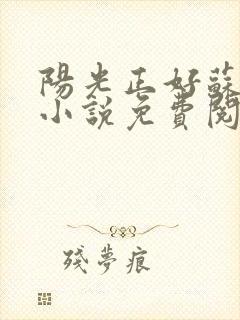 陽光正好蘇
小說免費閱
殘夢痕